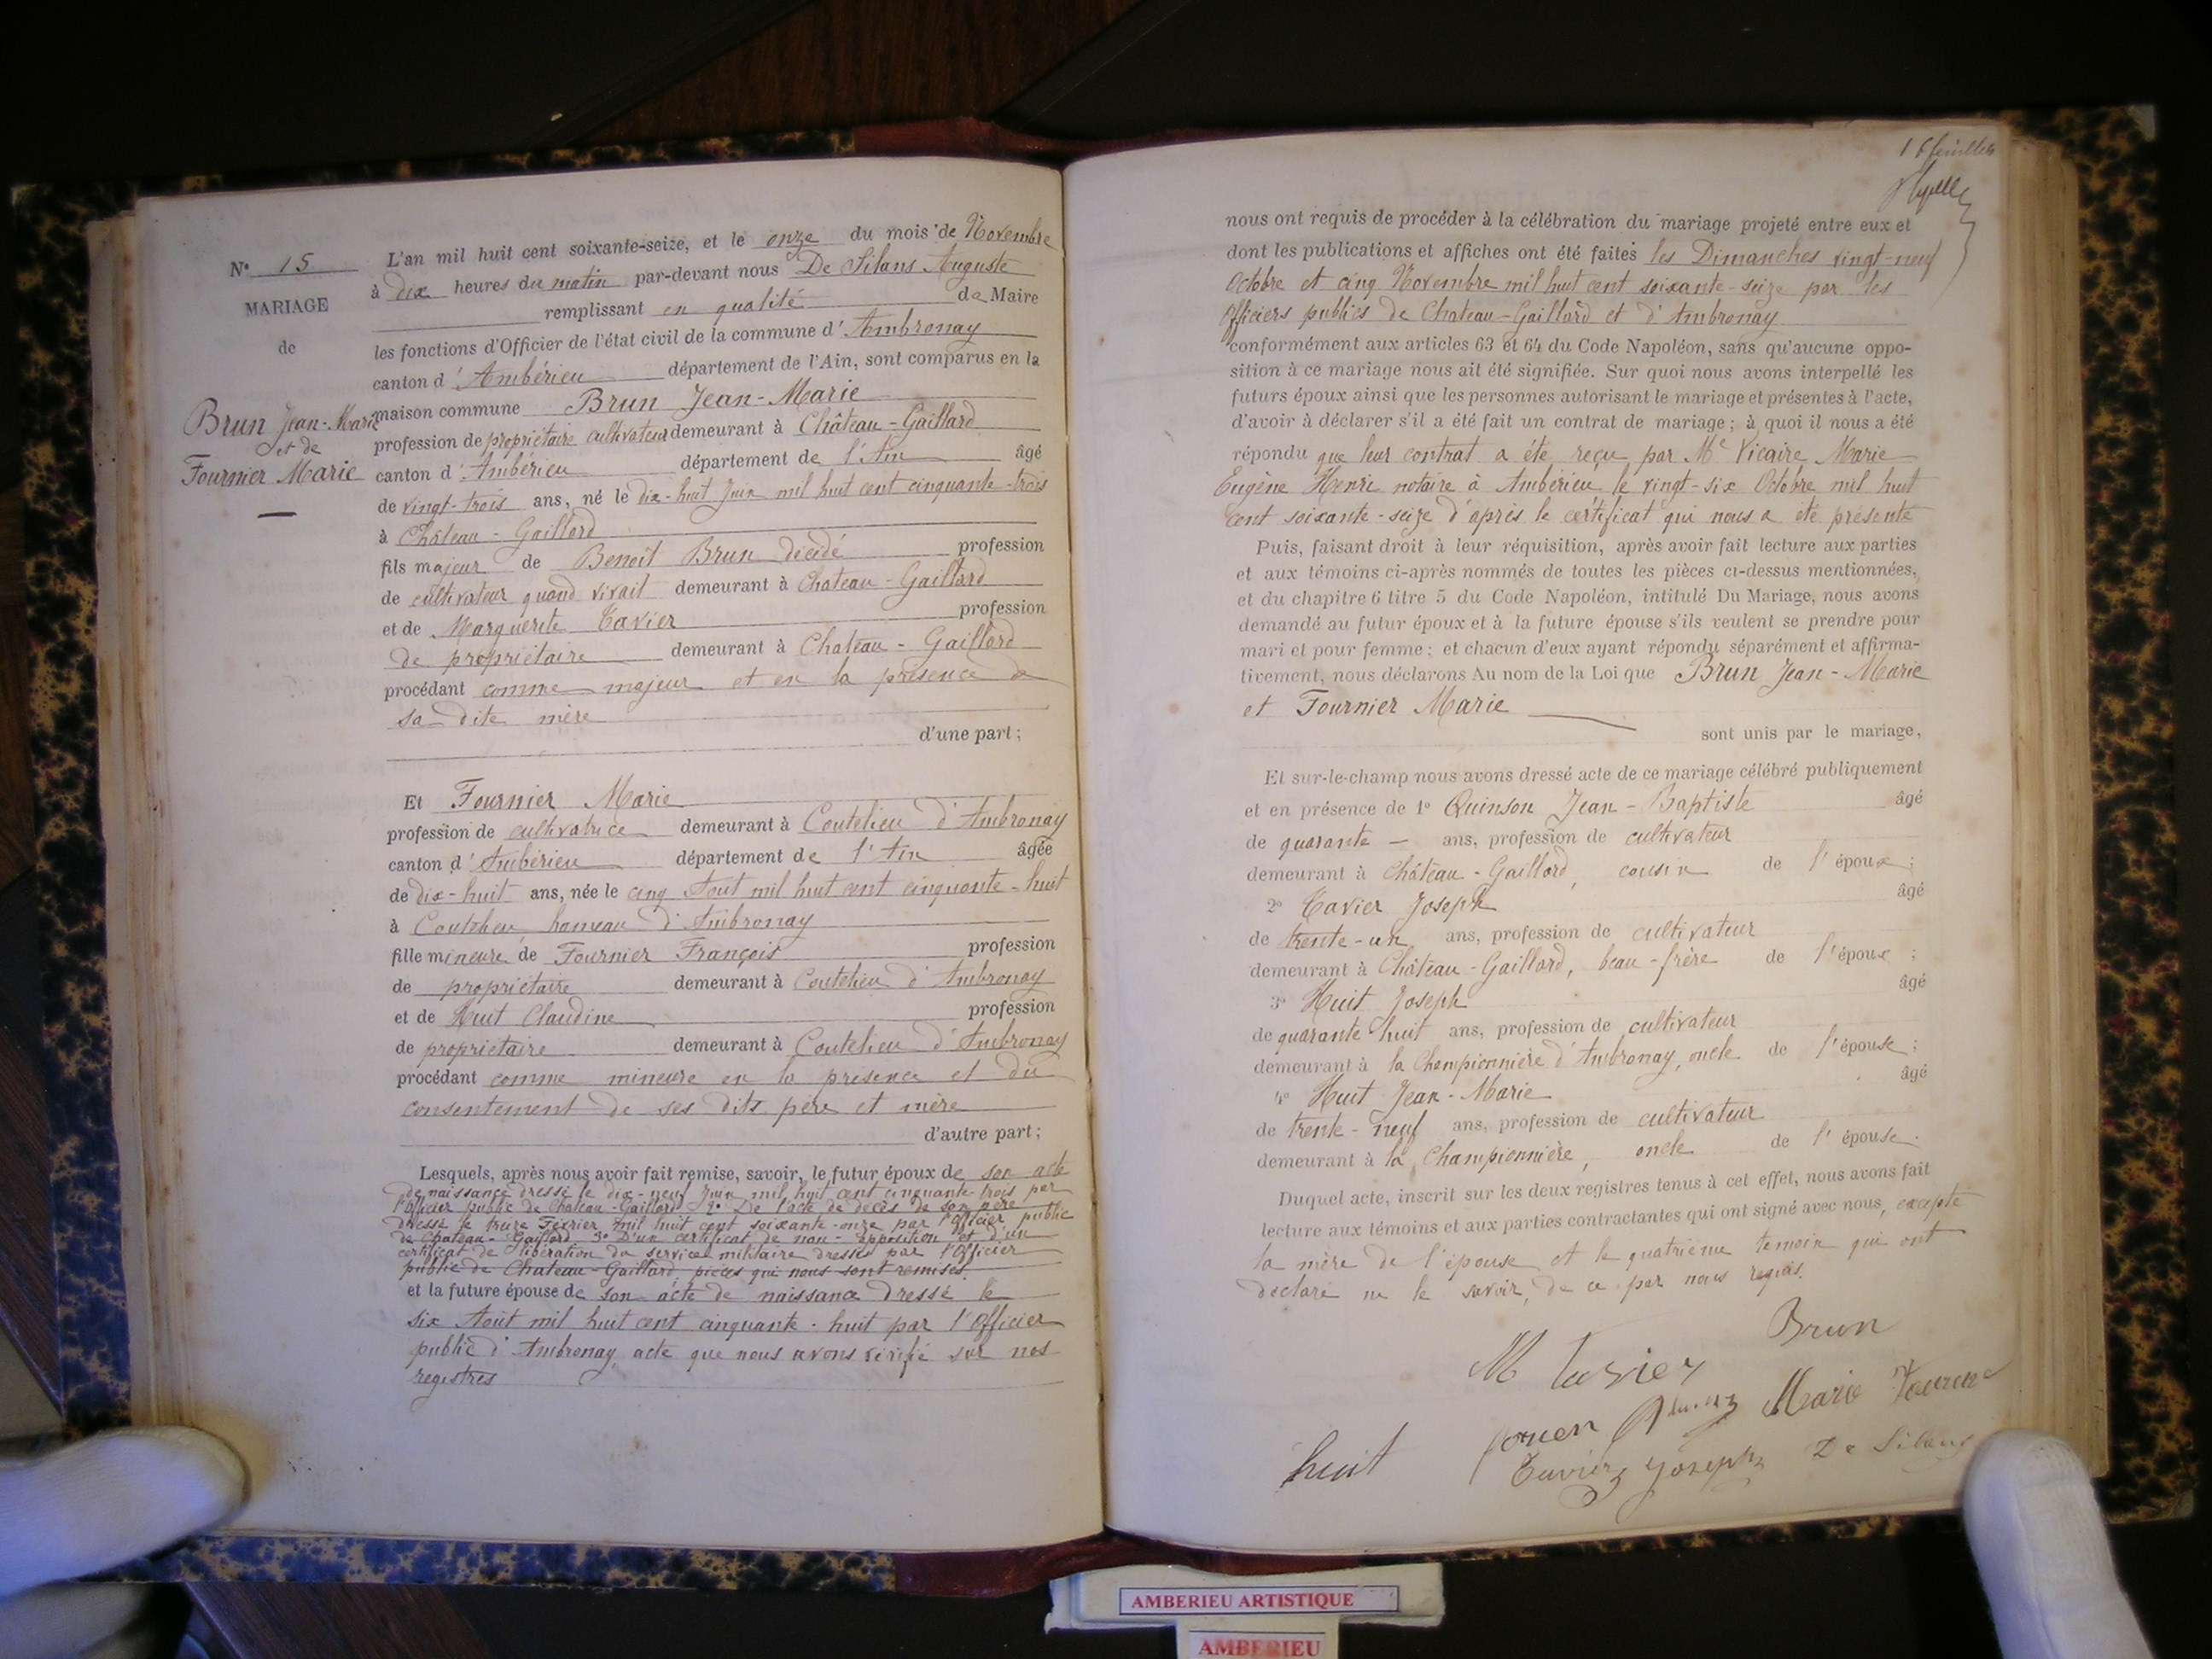 N° 15
MARIAGE
de
Brun Jean-Marie
et de
Fournier Marie
L'an mil huit cent soixante-seize, et le onze du mois de Novembre
à dix heures du matin par-devant nous De Silans Auguste
remplissant en qualité de Maire
les fonctions d'Officier de l'état civil de la commune d'Ambronay
canton d'Ambérieu département de l'Ain, sont comparus en la
maison commune Brun Jean-Marie
profession de propriétaire cultivateur demeurant à Château-Gaillard
canton d'Ambérieu département de l'Ain âgé
de vingt-trois ans, né le dix-huit Juin mil huit cent cinquante-trois
à Château-Gaillard
fils majeur de Benoit Brun décédé profession
de cultivateur quand vivait demeurant à Chateau-Gaillard
et de Marguerite Tavier profession
de propriétaire demeurant à Chateau-Gaillard
procédant comme majeur et en la présence de
sa dite mère
d'une part;
Et Fournier Marie
profession de cultivatrice demeurant à Coutelieu d'Ambronay
canton d'Ambérieu département de l'Ain âgée
de dix-huit ans, née le cinq Aout mil huit cent cinquante-huit
à Coutelieu hameau d'Ambronay
fille mineure de Fournier François profession
de propriétaire demeurant à Coutelieu d'Ambronay
et de Huit Claudine profession
de propriétaire demeurant à Coutelieu d'Ambronay
procédant comme mineure en la présence et du
consentement de ses dits père et mère
d'autre part;
Lesquels, après nous avoir fait remise, savoir, le futur époux de son acte
de naissance dressé le dix-neuf Juin mil huit cent cinquante-trois par
l'Officier public de Chateau-Gaillard 2° De l'acte de décès de son père
dressé le treize Février mil huit cent soixante-onze par l'Officier public
de Chateau-Gaillard 3° D'un certificat de non-opposition et d'un
certificat de libération du service militaire dressés par l'Officier
public de Chateau-Gaillard, pièces qui nous sont remises.
et la future épouse de son acte de naissance dressé le
six Aout mil huit cent cinquante-huit par l'Officier
public d'Ambronay acte que nous avons vérifié sur nos
registres
16 feuillets
nous ont requis de procéder à la célébration du mariage projeté entre eux et
dont les publications et affiches ont été faites les Dimanches vingt-neuf
Octobre et cinq Novembre mil huit cent soixante-seize par les
Officiers publics de Chateau-Gaillard et d'Ambronay
conformément aux articles 63 et 64 du Code Napoléon, sans qu'aucune oppo-
sition à ce mariage nous ait été signifiée. Sur quoi nous avons interpellé les
futurs époux ainsi que les personnes autorisant le mariage et présentes à l'acte,
d'avoir à déclarer s'il a été fait un contrat de mariage; à quoi il nous a été
répondu que leur contrat a été reçu par Me Vicaire Marie
Eugène Henri notaire à Ambérieu le vingt-six Octobre mil huit
cent soixante-seize d'après le certificat qui nous a été présenté
Puis, faisant droit à leur réquisition, après avoir fait lecture aux parties
et aux témoins ci-après nommés de toutes les pièces ci-dessus mentionnées,
et du chapitre 6 titre 5 du Code Napoléon, intitulé Du Mariage, nous avons
demandé au futur époux et à la future épouse s'ils veulent se prendre pour
mari et pour femme; et chacun d'eux ayant répondu séparément et affirma-
tivement, nous déclarons Au nom de la Loi que Brun Jean-Marie
et Fournier Marie
sont unis par le mariage,
Et sur-le-champ nous avons dressé acte de ce mariage célébré publiquement
et en présence de 1° Quinson Jean-Baptiste âgé
de quarante ans, profession de cultivateur
demeurant à Château-Gaillard, cousin de l'époux;
2° Tavier Joseph âgé
de trente-un ans, profession de cultivateur
demeurant à Château-Gaillard, beau-frère de l'époux;
3° Huit Joseph âgé
de quarante huit ans, profession de cultivateur
demeurant à la Championnière d'Ambronay, oncle de l'épouse;
4° Huit Jean-Marie âgé
de trente-neuf ans, profession de cultivateur
demeurant à la Championnière, oncle de l'épouse.
Duquel acte, inscrit sur les deux registres tenus à cet effet, nous avons fait
lecture aux témoins et aux parties contractantes qui ont signé avec nous, excepté
la mère de l'épouse et le quatrième témoin qui ont
déclaré ne le savoir, de ce par nous requis.
Brun
M tavier
Marie
huit
Tavier Joseph De Silans
AMBERIEU ARTISTIQUE
AMBERIEU